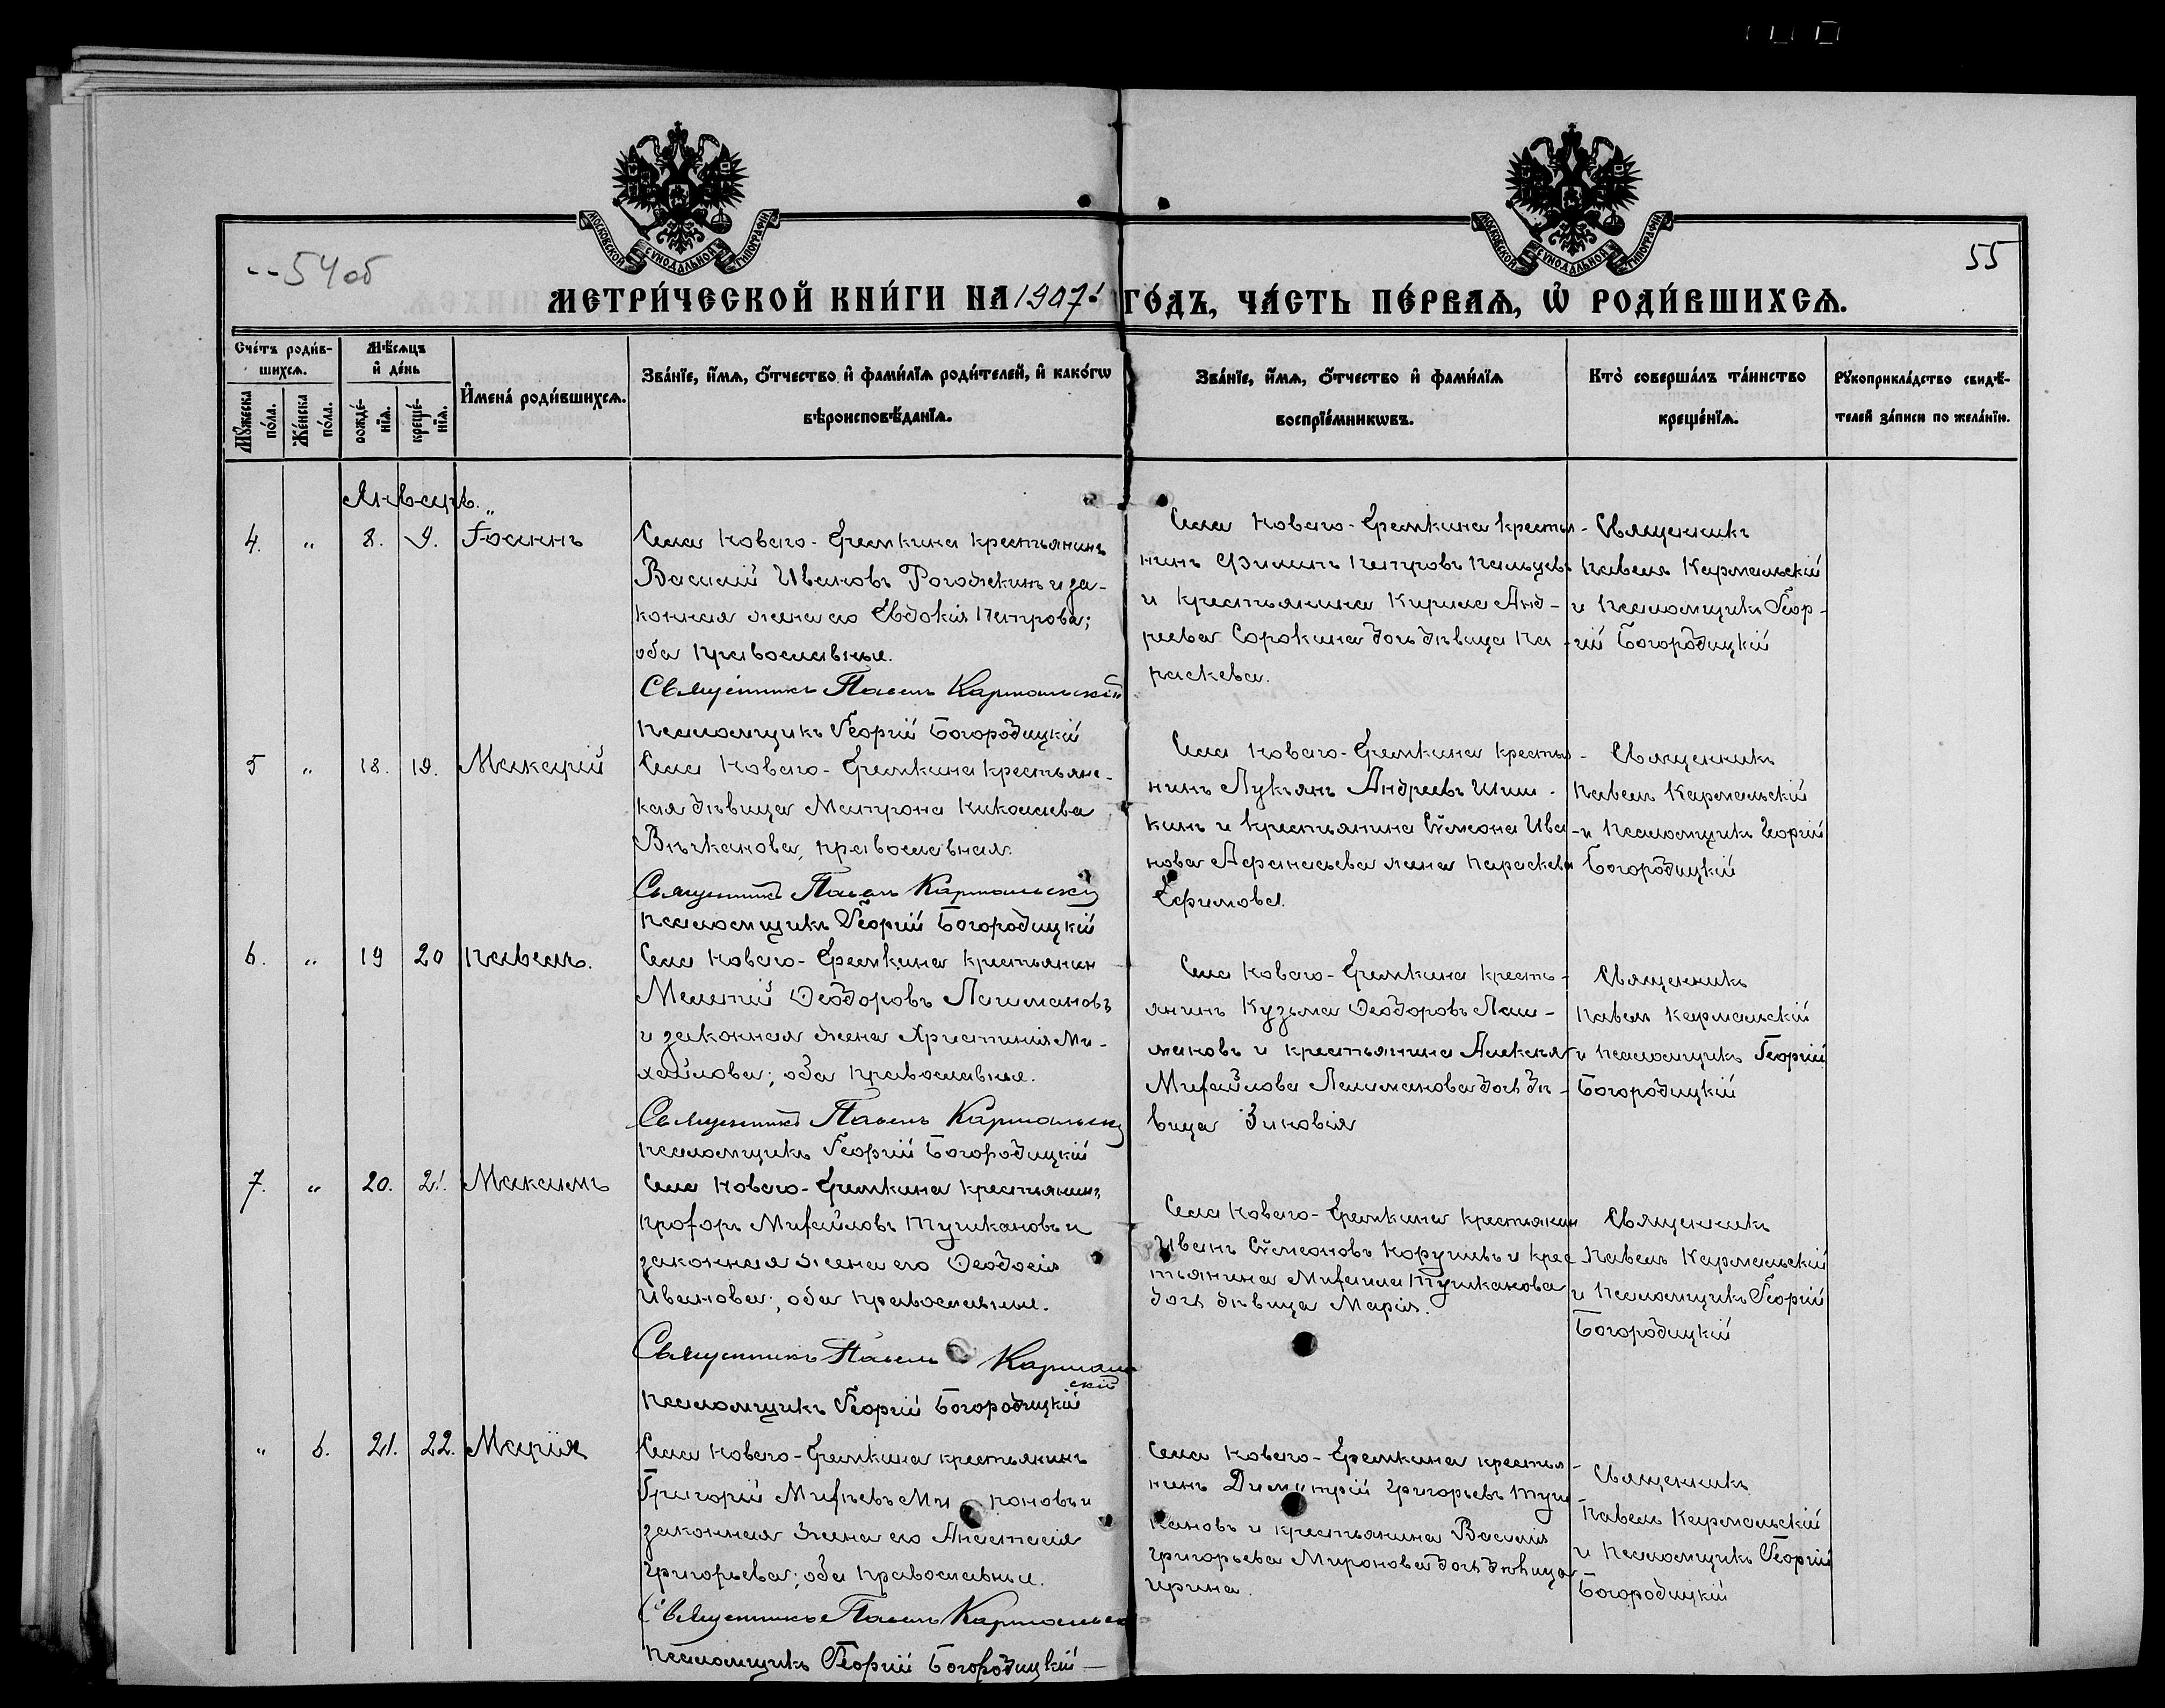 54об
55
МОСКОВСКОЙ СѴНОДАЛЬНОЙ ТИПОГРАФІИ
МОСКОВСКОЙ СѴНОДАЛЬНОЙ ТИПОГРАФІИ
МЕТРИ́ЧЕСКОЙ КНИ́ГИ НА 1907 ГО́ДЪ, ЧА́СТЬ ПЕ́РВАѦ, Ѡ҆ РОДИ́ВШИХСѦ.
Сче́тъ роди́в-
шихсѧ.
Мѹ́жеска по́ла.
Же́нска по́ла.
Мѣ́сѧцъ
и҆ де́нь
рожде́-
нїѧ.
креще́-
нїѧ.
И҆мена̀ роди́вшихсѧ.
Зва́нїе, и҆́мѧ, ѻ҆́тчество и҆ фами́лїѧ роди́телей, и҆ како́гѡ
вѣроисповѣ́данїѧ.
Зва́нїе, и҆́мѧ, ѻ҆́тчество и҆ фами́лїѧ
воспрїе́мникѡвъ.
Кто̀ соверша́лъ та́инство
креще́нїѧ.
Рѹкоприкла́дство свидѣ́-
телей за́писи по жела́нїю.
Январь.
4. " 8. 9. Іоаннъ
Села Новаго-Еремкина крестьянинъ
Василій Ивановъ Рогожкинъ и за-
конная жена его Евдокія Петрова;
оба православные.
Священникъ Павелъ Кармальскій
Псаломщикъ Георгій Богородицкій
Села Новаго-Еремкина крестья-
нинъ Филипъ Петровъ Пальцевъ
и крестьянина Кирила Анд-
реева Сорокина дочь дѣвица Па-
раскева.
Священникъ
Павелъ Кармальскій
и Псаломщикъ Геор-
гій Богородицкій
5 " 18. 19. Макарій
Села Новаго-Еремкина крестьянс-
кая дѣвица Матрона Николаева
Вѣчканова, православная.
Священникъ Павелъ Кармальскій
Псаломщикъ Георгій Богородицкій
Села Новаго-Еремкина крестья-
нинъ Лукьянъ Андреевъ Шиш-
кинъ и крестьянина Сѵмеона Ива-
нова Афанасьева жена Параскева
Ефимова.
Священникъ
Павелъ Кармальскій
и Псаломщикъ Георгій
Богородицкій
6. " 19 20 Павелъ.
Села Новаго-Еремкина крестьянин
Мелетій Ѳеодоровъ Лашмановъ
и законная жена Христинія Ми-
хайлова; оба православные.
Священникъ Павелъ Кармальскій
Псаломщикъ Георгій Богородицкій
Села Новаго-Еремкина кресть-
янинъ Кузьма Ѳеодоровъ Лаш-
мановъ и крестьянина Алексѣя
Михайлова Лашманова дочь дѣ-
вица Зиновія
Священникъ
Павел Кармальскій
и Псаломщикъ Георгій
Богородицкій
7. " 20. 21. Максимъ
Села Новаго-Еремкина крестьянинъ
Прохоръ Михайловъ Тушкановъ и
законная жена его Ѳеодосія
Иванова; оба православные.
Священникъ Павелъ Кармаль
скій
Псаломщикъ Георгій Богородицкій
Села Новаго-Еремкина крестьянин
Иванъ Сѵмеоновъ и крес
тьянина Михаила Тушканова
дочь дѣвица Марія.
Священникъ
Павелъ Кармальскій
и Псаломщикъ Георгій
Богородицкій
" 6. 21. 22. Марія
Села Новаго-Еремкина крестьянинъ
Григорій Михѣевъ Ми роновъ и
законная жена его Анастасія
Григорьева; оба православные.
Священникъ Павелъ Кармальск
Псаломщикъ Георгій Богородицкій
Села Новаго-Еремкина крестья-
нинъ Димитрій Григорьевъ Туш
кановъ и крестьянина Василія
Григорьева Миронова дочь дѣвица
Ирина.
Священникъ
Павелъ Кармальскій
и Псаломщикъ Георгій
Богородицкій